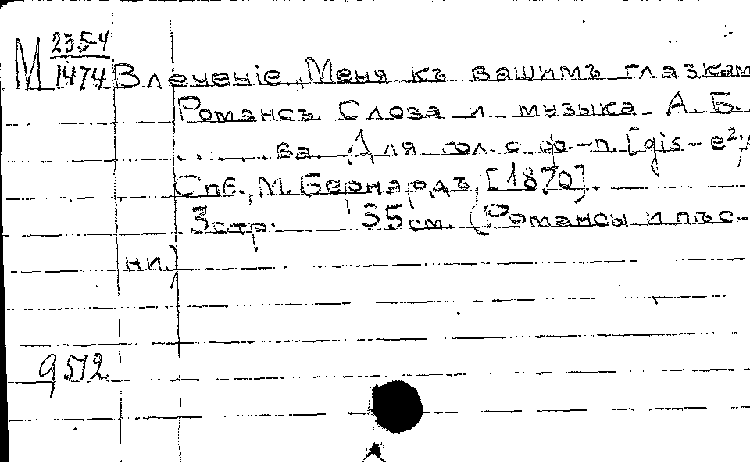 М 2354/1474 Влеченіе, Меня къ вашимъ глазкам
Романсъ. Слова и музыка А. Б.
. . . . . . ва. Для гол. с ф-п. [gis – e²]
Спб., М. Бернардъ, [1870].
3 стр. 35 см. (Романсы и пѣс-
ни.)
9512